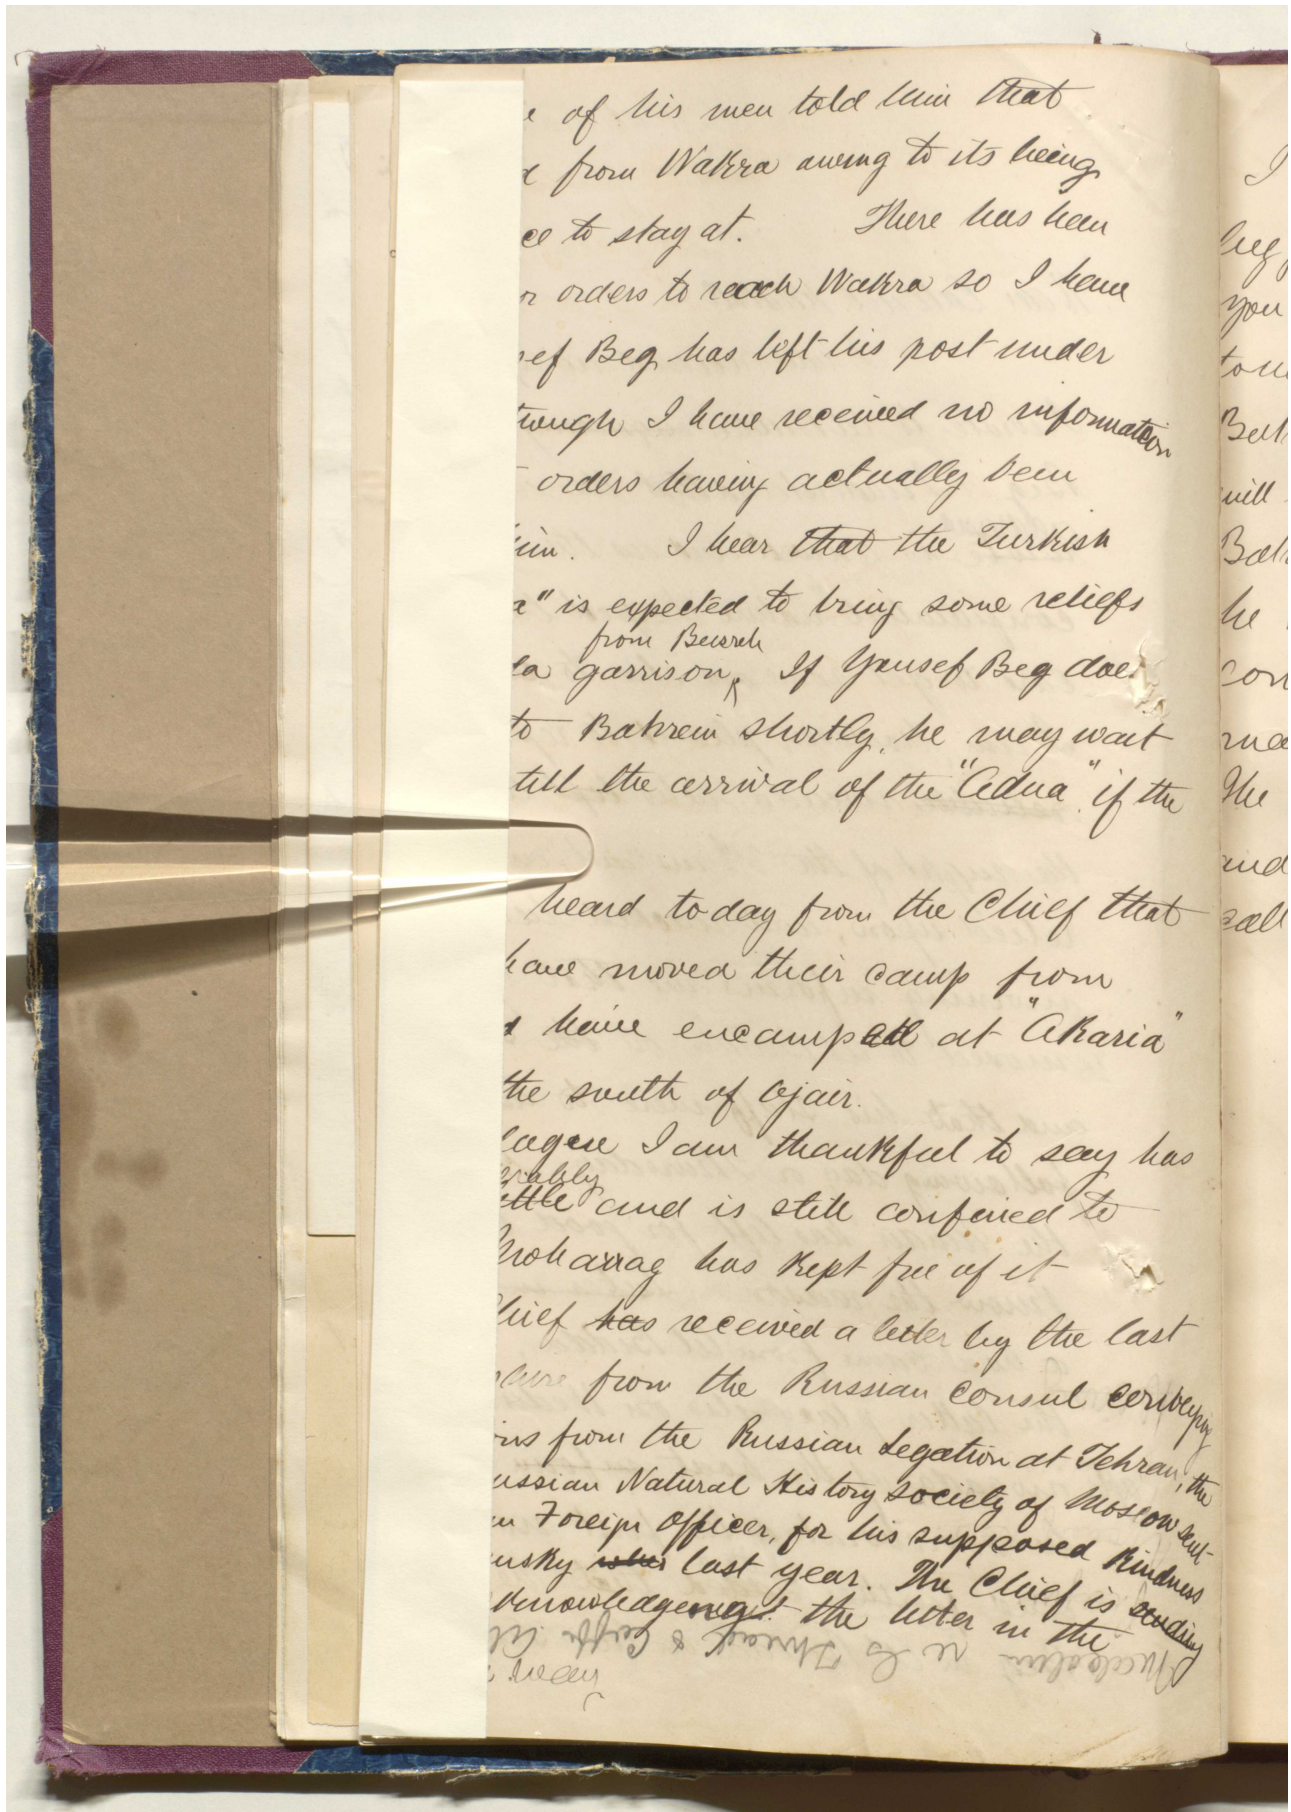 of his men told him that
from Wakra owing to its being
ce to stay at. There has been
or orders to reach Wakra so I have
sef Beg has left his post under
hough I have received no information
orders having actually been
him. I hear that the Turkish
a" is expected to bring some reliefs
from Busreh
la garrison, If Yousef Beg does
to Bahrein shortly, he may wait
till the arrival of the "Adna" if the
heard today from the Chief that
have moved their camp from
have encamped at "Akaria"
the south of Ojair.
lague I am thankful to say has
erably
ittle and is still confined to
Moharrag has kept free of it
Chief has received a letter by the last
from the Russian Consul conveying
ons from the Russian Legation at Tehran, the
ussian Natural History Society of Moscow
an Foreign Officer, for his supposed kindness
nsky last year. The Chief is sending
cknowledgement the letter in the